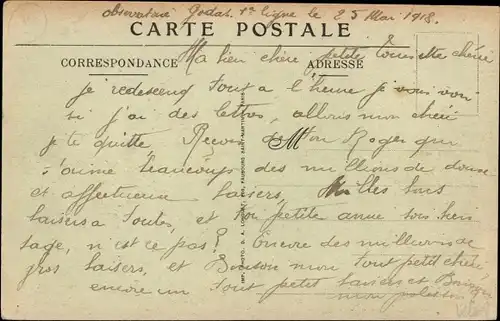 observatoire Godat 1re ligne le 25 Mai 1918.
CARTE POSTALE
Ma bien chère petite
CORRESPONDANCE
ADRESSE
je redescend tout a l'heure je vous
si j'ai des lettres, allons mon chéri
je te quitte Reçois de ton Roger qui
t'aime beaucoup des millions de doux
et affectueux baisers, Milles bons
baisers a toutes, et ton petite anne tous bien
sage, n'est ce pas? Encore des millions de
gros baisers, et Bonsoir mon tout petit chéri
encore un tout petit baisers et Bonsoir
mon
IMP. PHOTO. D. A. FAUBOURG SAINT-MARTIN, PARIS